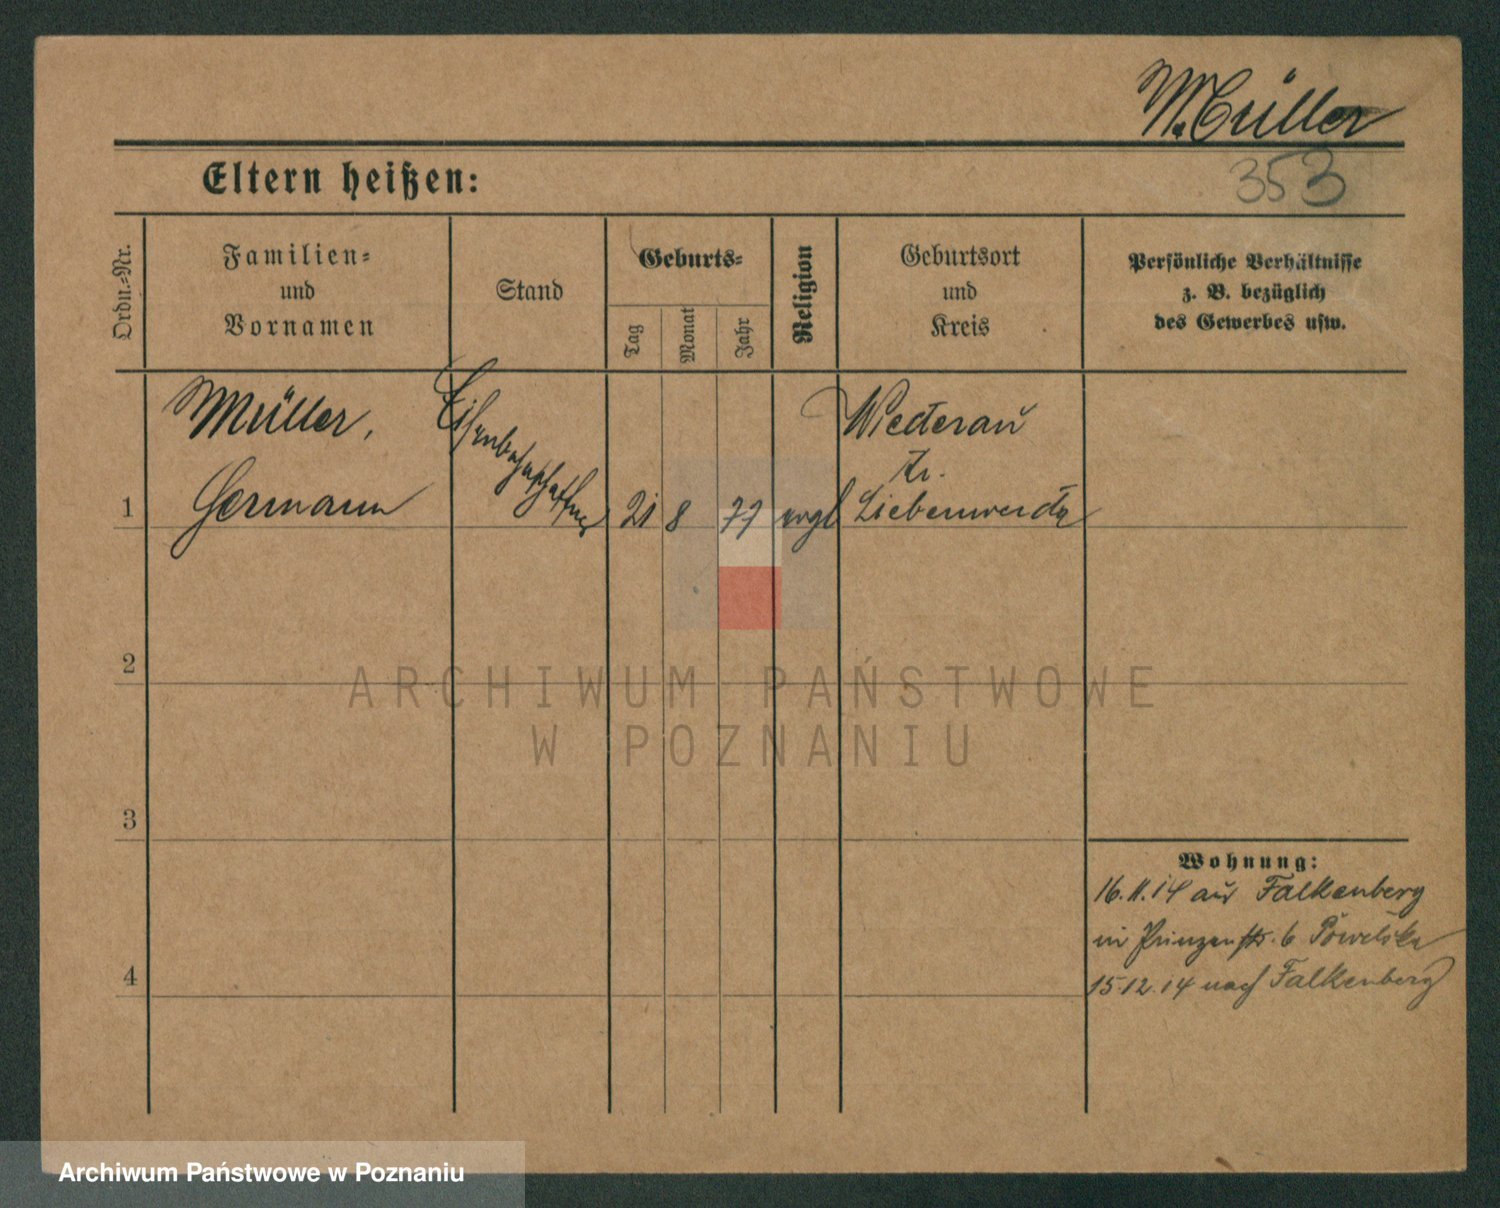 Müller
353
Eltern heißen:
Ordn.-Nr.
Familien-
und
Vornamen
Stand
Geburts-
Tag
Monat
Jahr
Religion
Geburtsort
und
Kreis
Persönliche Verhältnisse
z. B. bezüglich
des Gewerbes usw.
1
Müller,
Hermann
Eisenbahnschaffner
21
8
77
evgl
Wiederau
Kr.
Liebenwerda
2
ARCHIWUM PAŃSTWOWE
W POZNANIU
3
Wohnung:
16.11.14 aus Falkenberg
in Prinzenstr. 6
4
15.12.14 nach Falkenberg
Archiwum Państwowe w Poznaniu